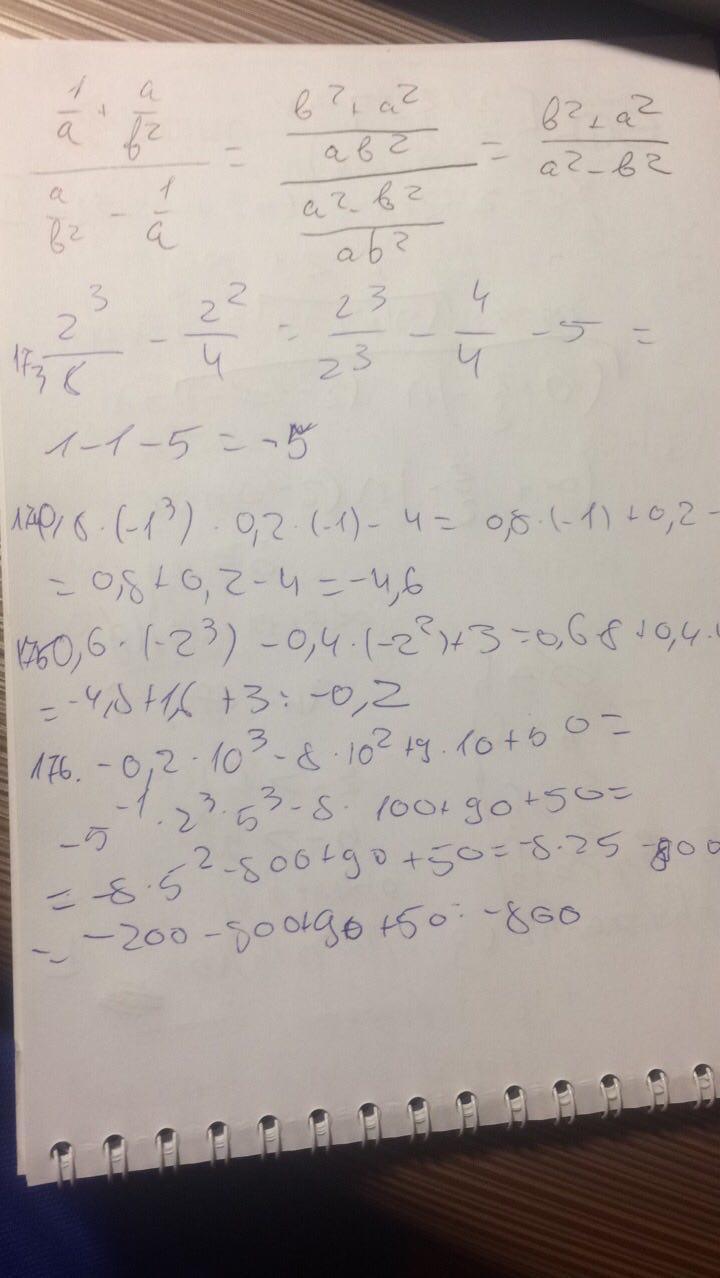 1/a + a/b² / a/b² - 1/a = b²+a²/ab² / a²-b²/ab² = b²+a²/a²-b²
173 2³/8 - 2²/4 = 2³/2³ - 4/4 - 5 =
1-1-5 = -5
174 0,8·(-1³)·0,2·(-1)-4 = 0,8·(-1)+0,2-
= 0,8+0,2-4 = -4,6
175 0,6·(-2³)-0,4·(-2²)+3=0,6·8+0,4·
= -4,8+1,6+3 = -0,2
176. -0,2·10³-8·10²+9·10+50=
-5⁻¹·2³·5³-8·100+90+50=
= -8·5²-800+90+50=-8·25-800
= -200-800+90+50=-800